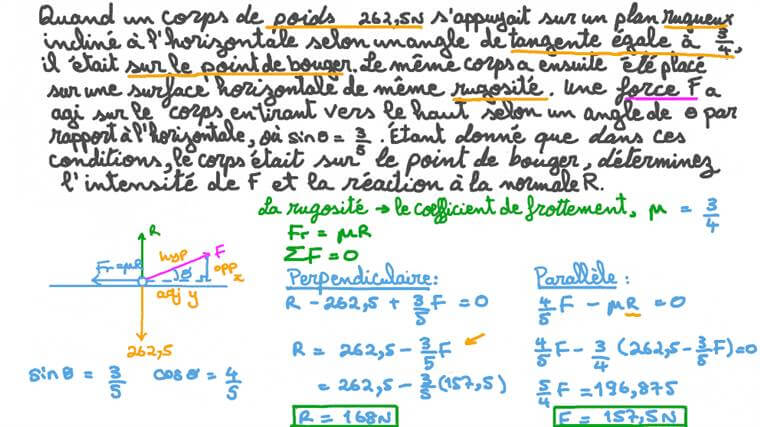 Quand un corps de poids 262,5N s'appuyait sur un plan rugueux
incliné à l'horizontale selon un angle de tangente égale à 3/4,
il était sur le point de bouger. Le même corps a ensuite été placé
sur une surface horizontale de même rugosité. Une force F a
agi sur le corps en tirant vers le haut selon un angle de θ par
rapport à l'horizontale, où sinθ = 3/5. Étant donné que dans ces
conditions, le corps était sur le point de bouger, déterminez
l'intensité de F et la réaction à la normale R.
La rugosité → le coefficient de frottement, μ = 3/4
Fr = μR
ΣF = 0
R
Fr = μR
hyp
F
θ
opp
x
adj y
262,5
sinθ = 3/5 cosθ = 4/5
Perpendiculaire:
R - 262,5 + 3/5 F = 0
R = 262,5 - 3/5 F
= 262,5 - 3/5 (157,5)
R = 168N
Parallèle:
4/5 F - μR = 0
4/5 F - 3/4 (262,5 - 3/5 F) = 0
5/4 F = 196,875
F = 157,5N